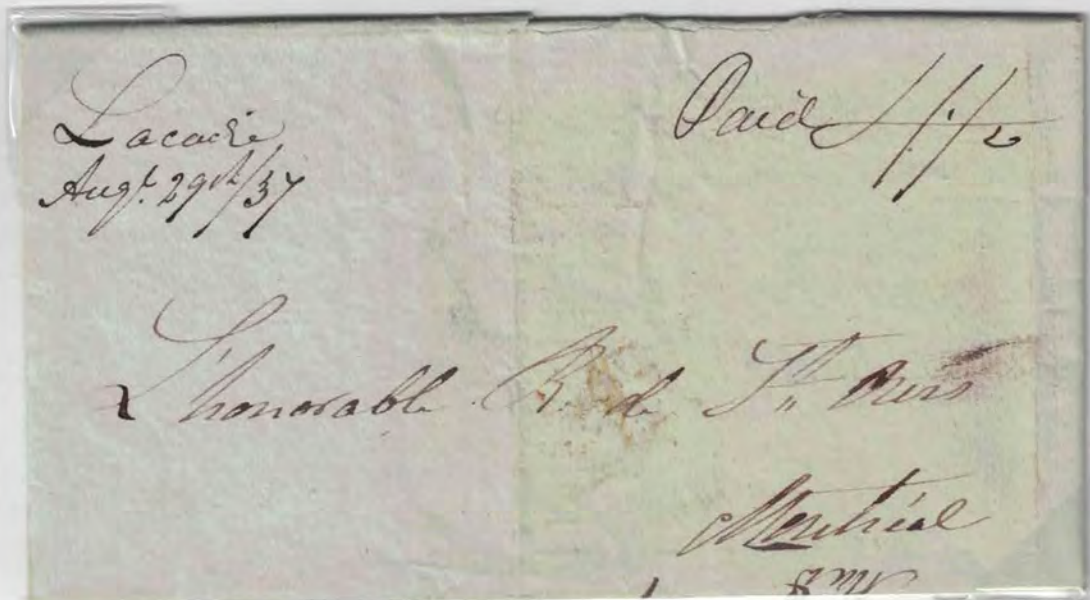 Lacadie
Augt. 29th/37
Paid 1/1/2
L'honorable R. de St. Ours
Montréal